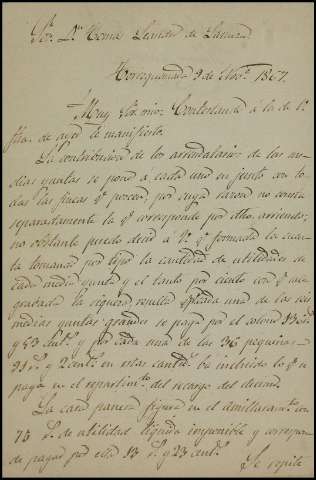 Sor. Dn. Tomás de
Torrequemada 9 de Nobre. 1867.
Muy Sor. mio: Contestando á la de V.
fha. de ayer le manifiesto
La contribucion de los arrendatarios de las me-
dias yuntas se pone á cada uno en junto con to-
das las fincas q. poseen, por cuya razon no consta
separadamente la q. corresponde por dho. arriendo;
no obstante puedo decir á V. q. formada la cuen-
ta tomando por tipo la cantidad de utilidades de
cada media yunta y el tanto por ciento con q. está
gravada la riqueza, resulta q. cada una de las
medias yuntas grandes se paga por el colono
y 53 cents. y por cada una de las 36 pequeñas
21 rs. y 2 cents. en estas cantids. va incluido lo q. se
paga en el repartimto. del recargo del
La casa panera figura en el amillaramto. con
75 rs. de utilidad líquida imponible y correspon-
de pagar por ella 13 rs. y 23 cents.
Se repite